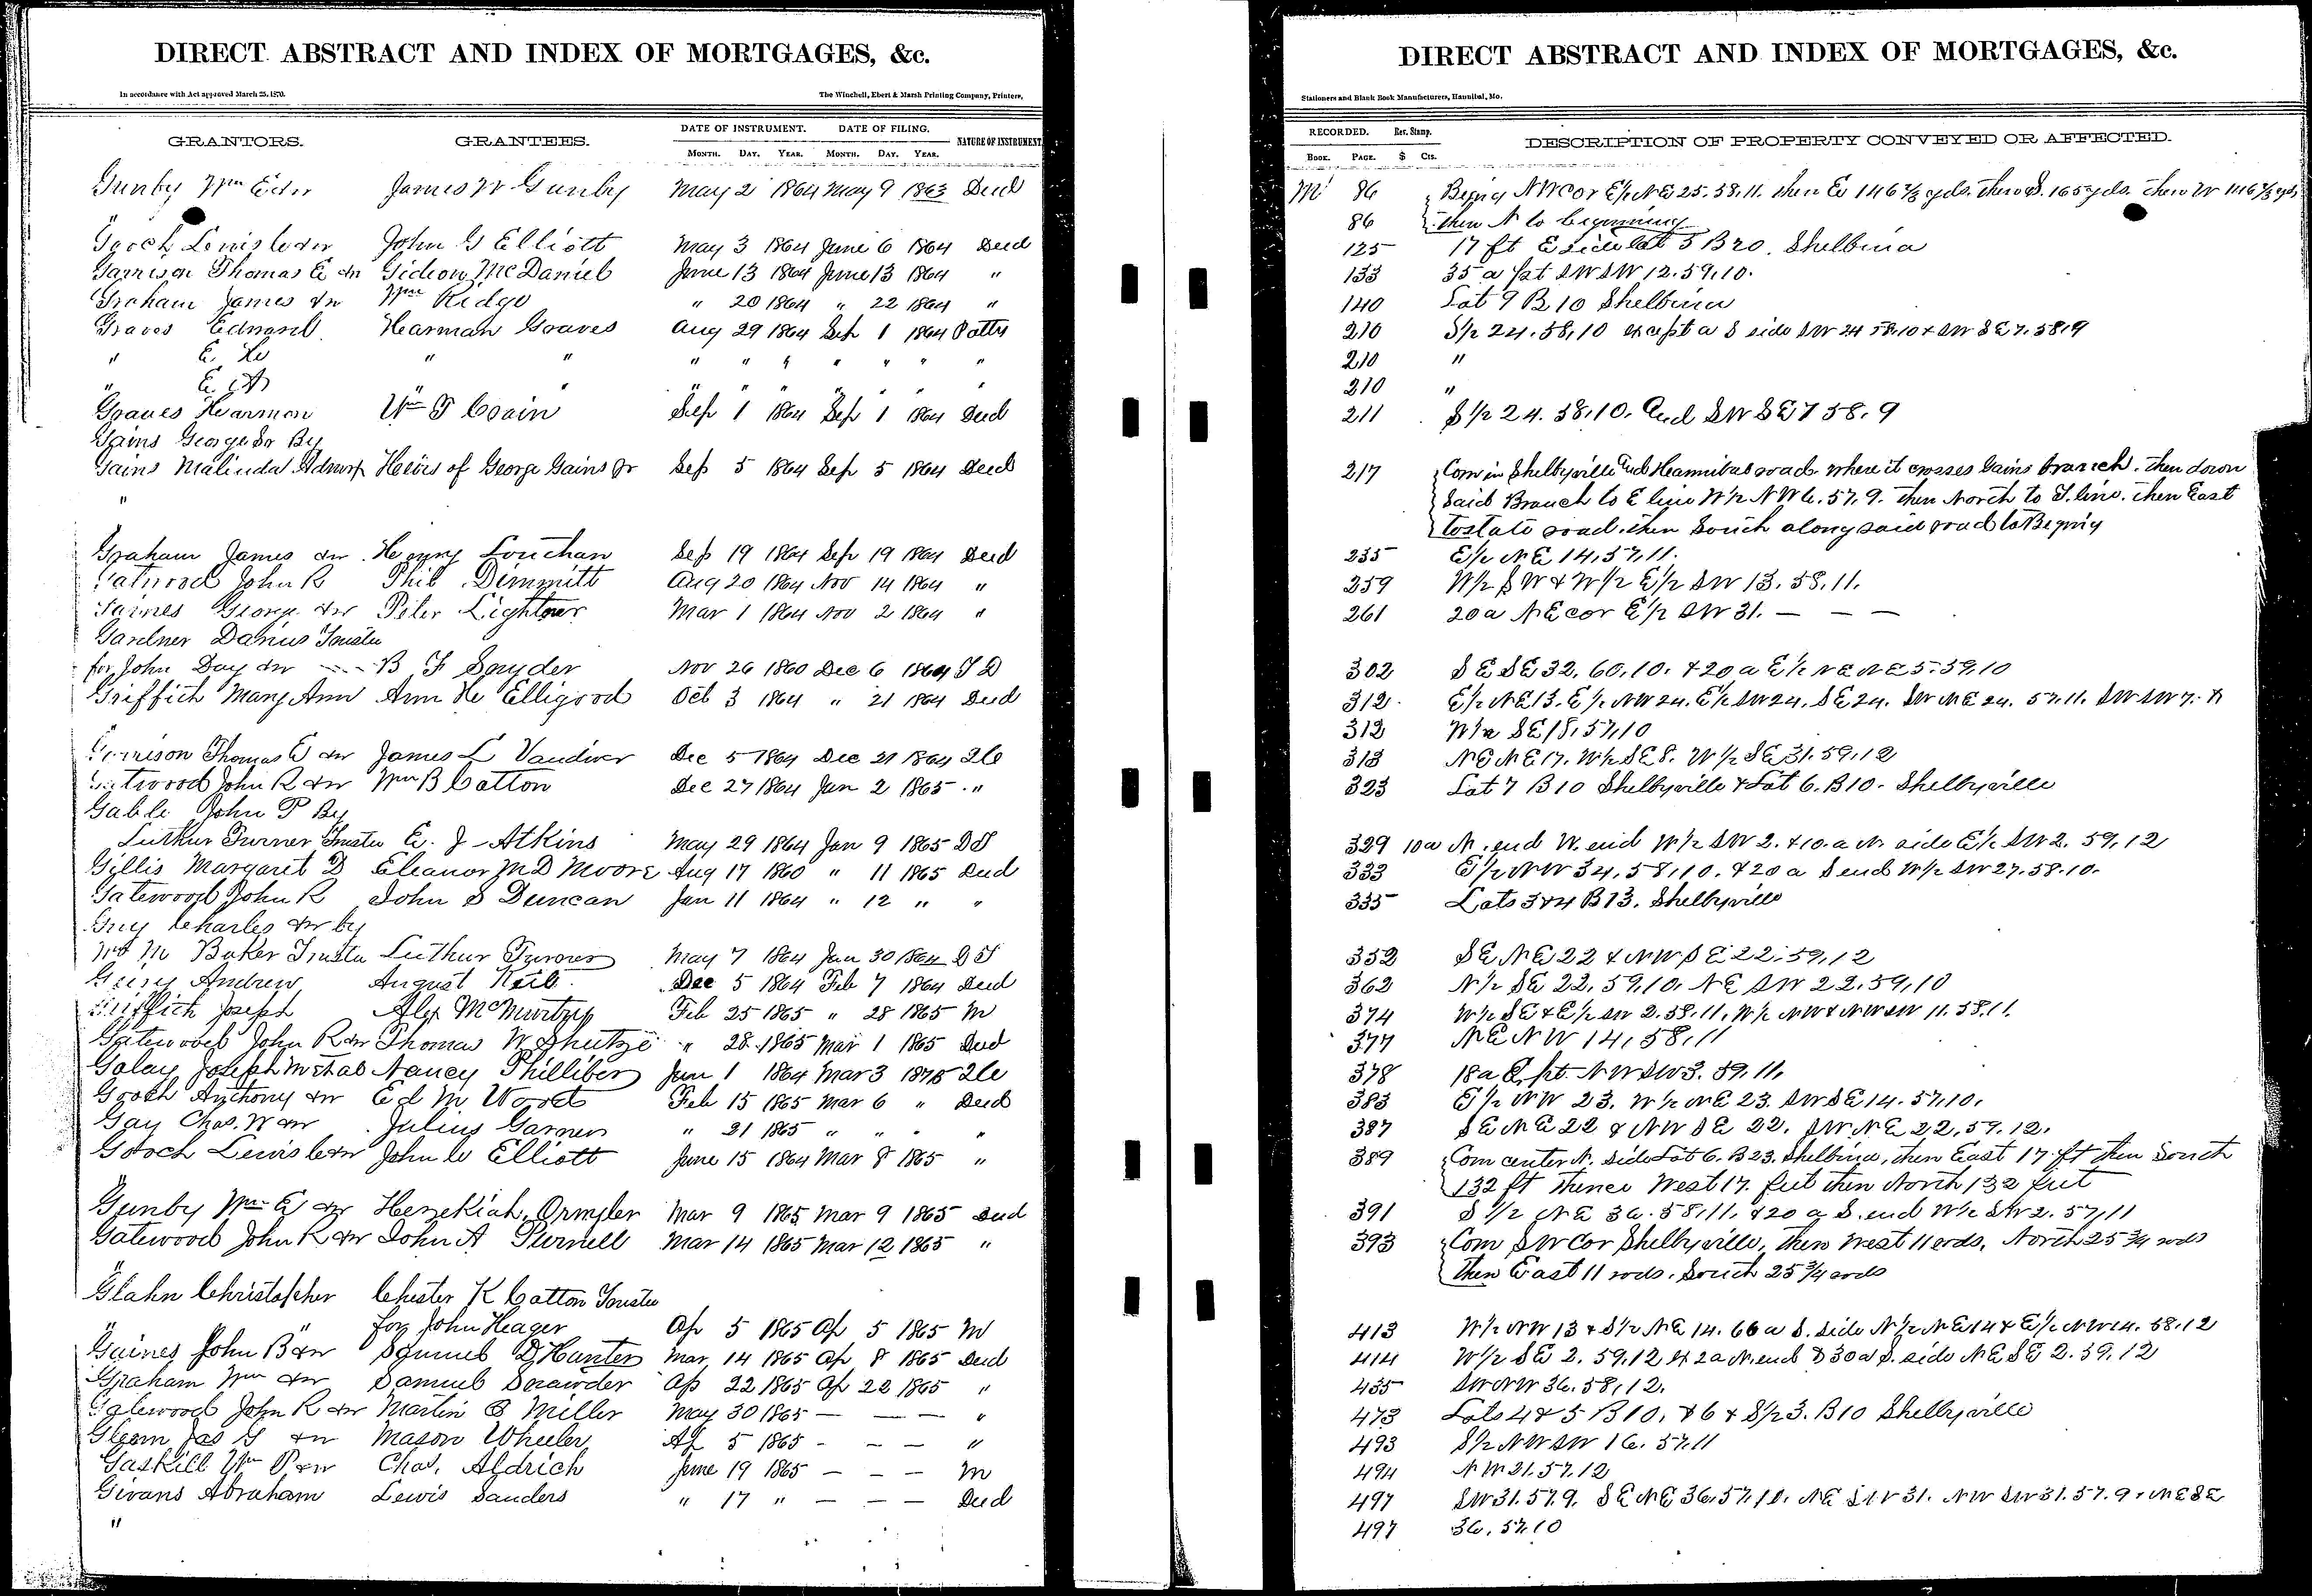 DIRECT ABSTRACT AND INDEX OF MORTGAGES, &c.
In accordance with Act approved March 25, 1870.
The Winchell, Ebert & Marsh Printing Company, Printers,
GRANTORS. GRANTEES. DATE OF INSTRUMENT. DATE OF FILING. NATURE OF INSTRUMENT
MONTH. DAY. YEAR. MONTH. DAY. YEAR.
Gunby Wm E &w James W Gunby May 2 1864 May 9 1863 Deed
"
Gooch Lewis &w John G Elliott May 3 1864 June 6 1864 Deed
Garrison Thomas E &w Gideon McDaniel June 13 1864 June 13 1864 "
Graham James &w Wm Ridge " 20 1864 " 22 1864 "
Graves Edward Hearman Graves Aug 29 1864 Sep 1 1864 Patty
" E. " " " " " " " " "
" E. " " " " " " " "
Graves Hearman Wm T Crain Sep 1 1864 Sep 1 1864 Deed
Gains George Sr By
Gains Malinda Admrx Heirs of George Gains Sr Sep 5 1864 Sep 5 1864 Deed
"
Graham James &w Henry Louchan Sep 19 1864 Sep 19 1864 Deed
Gatwood John R Phil Dimmitt Aug 20 1864 Nov 14 1864 "
Gaines George &w Peter Lightner Mar 1 1864 Nov 2 1864 "
Gardner Darius Trustee
for John Day &w B F Snyder Nov 26 1860 Dec 6 1864 T D
Griffith Mary Ann Ann He Elligood Oct 3 1864 " 21 1864 Deed
"
Garrison Thomas E &w James L Vandiver Dec 5 1864 Dec 21 1864
Gatwood John R &w Wm B Cotton Dec 27 1864 Jan 2 1865 "
Gable John P By
Luthur Turner Trustee E. J Atkins May 29 1864 Jan 9 1865 D T
Gillis Margaret D Eleanor M D Moore Aug 17 1860 " 11 1865 Deed
Gatewood John R John S Duncan Jan 11 1864 " 12 " "
Guy Charles &w by
M Baker Trustee Luthur Turner May 7 1864 Jan 30 1864 D T
Andrew August Keil Dec 5 1864 Feb 7 1864 Deed
Griffith Joseph Alex McMurtry Feb 25 1865 " 28 1865 M
Gatewood John R &w Thomas W Shutze " 28 1865 Mar 1 1865 Deed
Golay Joseph M et al Nancy Philliber Jan 1 1864 Mar 3 1875
Gooch Anthony &w Ed M Feb 15 1865 Mar 6 " Deed
Gay Chas. W &w Julius Garner " 21 1865 " " " "
Gooch Lewis &w John W Elliott June 15 1864 Mar 8 1865 "
"
Gunby Wm E &w Hezekiah Mar 9 1865 Mar 9 1865 Deed
Gatewood John R &w John A Purnell Mar 14 1865 Mar 12 1865 "
"
Glahn Christopher Chester K Cotton Trustee
" " for John Heager Ap 5 1865 Ap 5 1865 M
Gaines John B &w Samuel D Hunter Mar 14 1865 Ap 8 1865 Deed
Graham Wm &w Samuel Ap 22 1865 Ap 22 1865 "
Gatewood John R &w Martin B Miller May 30 1865 — — — "
Jas G &w Mason Wheeler Ap 5 1865 - — — "
Gaskill Wm P &w Chas. Aldrich June 19 1865 — - — M
Givans Abraham Lewis Sanders " 17 " — — — Deed
"
DIRECT ABSTRACT AND INDEX OF MORTGAGES, &c.
Stationers and Blank Book Manufacturers, Hannibal, Mo.
RECORDED. Rev. Stamp. DESCRIPTION OF PROPERTY CONVEYED OR AFFECTED.
BOOK. PAGE. $ Cts.
M 86 Beging NW Cor E½ NE 25.58.11. then E 146⅔ yds. then S. 165 yds. then W 146⅔ yds
86 then N to beginning
125 17 ft E side lot 5 B 20. Shelbina
133 35 a pt SW SW 12.59.10.
140 Lot 9 B 10 Shelbina
210 S½ 24.58.10 except a S side SW 24 58.10 & SW SE 7.58.9
210 "
210 "
211 S½ 24.58.10. and SW SE 7 58.9
217 Com in Shelbyville and Hannibal road where it crosses Gains branch. then down
Said Branch to E line W½ NW 6.57.9. then North to T. line. then East
to state road. then South along said road to Beging
235 E½ NE 14.57.11.
259 W½ SW & W½ E½ SW 13.58.11.
261 20 a NE cor E½ SW 31. — — —
302 SE SE 32.60.10. & 20 a E½ NE NE 5.59.10
312 E½ NE 13. E½ NW 24. E½ SW 24. SE 24. SW NE 24. 57.11. SW SW 7. &
312 W½ SE 18.57.10
313 NE NE 17. W½ SE 8. W½ SE 31.59.12
323 Lot 7 B 10 Shelbyville & Lot 6. B 10. Shelbyville
329 10 a N. end W. end W½ SW 2. & 10. a N side E½ SW 2. 59.12
333 E½ NW 34.58.10. & 20 a S end W½ SW 27.58.10.
335 Lots 3 & 4 B 13. Shelbyville
352 SE NE 22 & NW SE 22.59.12
362 N½ SE 22.59.10. NE SW 22.59.10
374 W½ SE & E½ SW 2.58.11. W½ NW & NW SW 11.58.11.
377 NE NW 14.58.11
378 18 a E. pt. NW SW 3.59.11.
383 E½ NW 23. W½ NE 23. SW SE 14.57.10.
387 SE NE 22 & NW SE 22. SW NE 22.59.12.
389 Com center N. side Lot 6. B 23. Shelbina, then East 17 ft then South
132 ft thence West 17. feet then North 132 feet
391 S½ NE 36.58.11. & 20 a S. end W½ SW 2.57.11
393 Com SW Cor Shelbyville, then West 11 rods. North 25¾ rods
then East 11 rods. South 25¾ rods
413 W½ NW 13 & S½ NE 14. 66 a S. side N½ NE 14 & E½ NW 14. 58.12
414 W½ SE 2. 59.12 & 2 a N. end & 30 a S. side NE SE 2.59.12
435 SW NW 36.58.12.
473 Lots 4 & 5 B 10. & 6 & S½ 3. B 10 Shelbyville
493 S½ NW SW 16.57.11
494 NW 21.57.12
497 SW 31.57.9. SE NE 36.57.10. NE SW 31. NW SW 31.57.9. NE SE
497 36.57.10